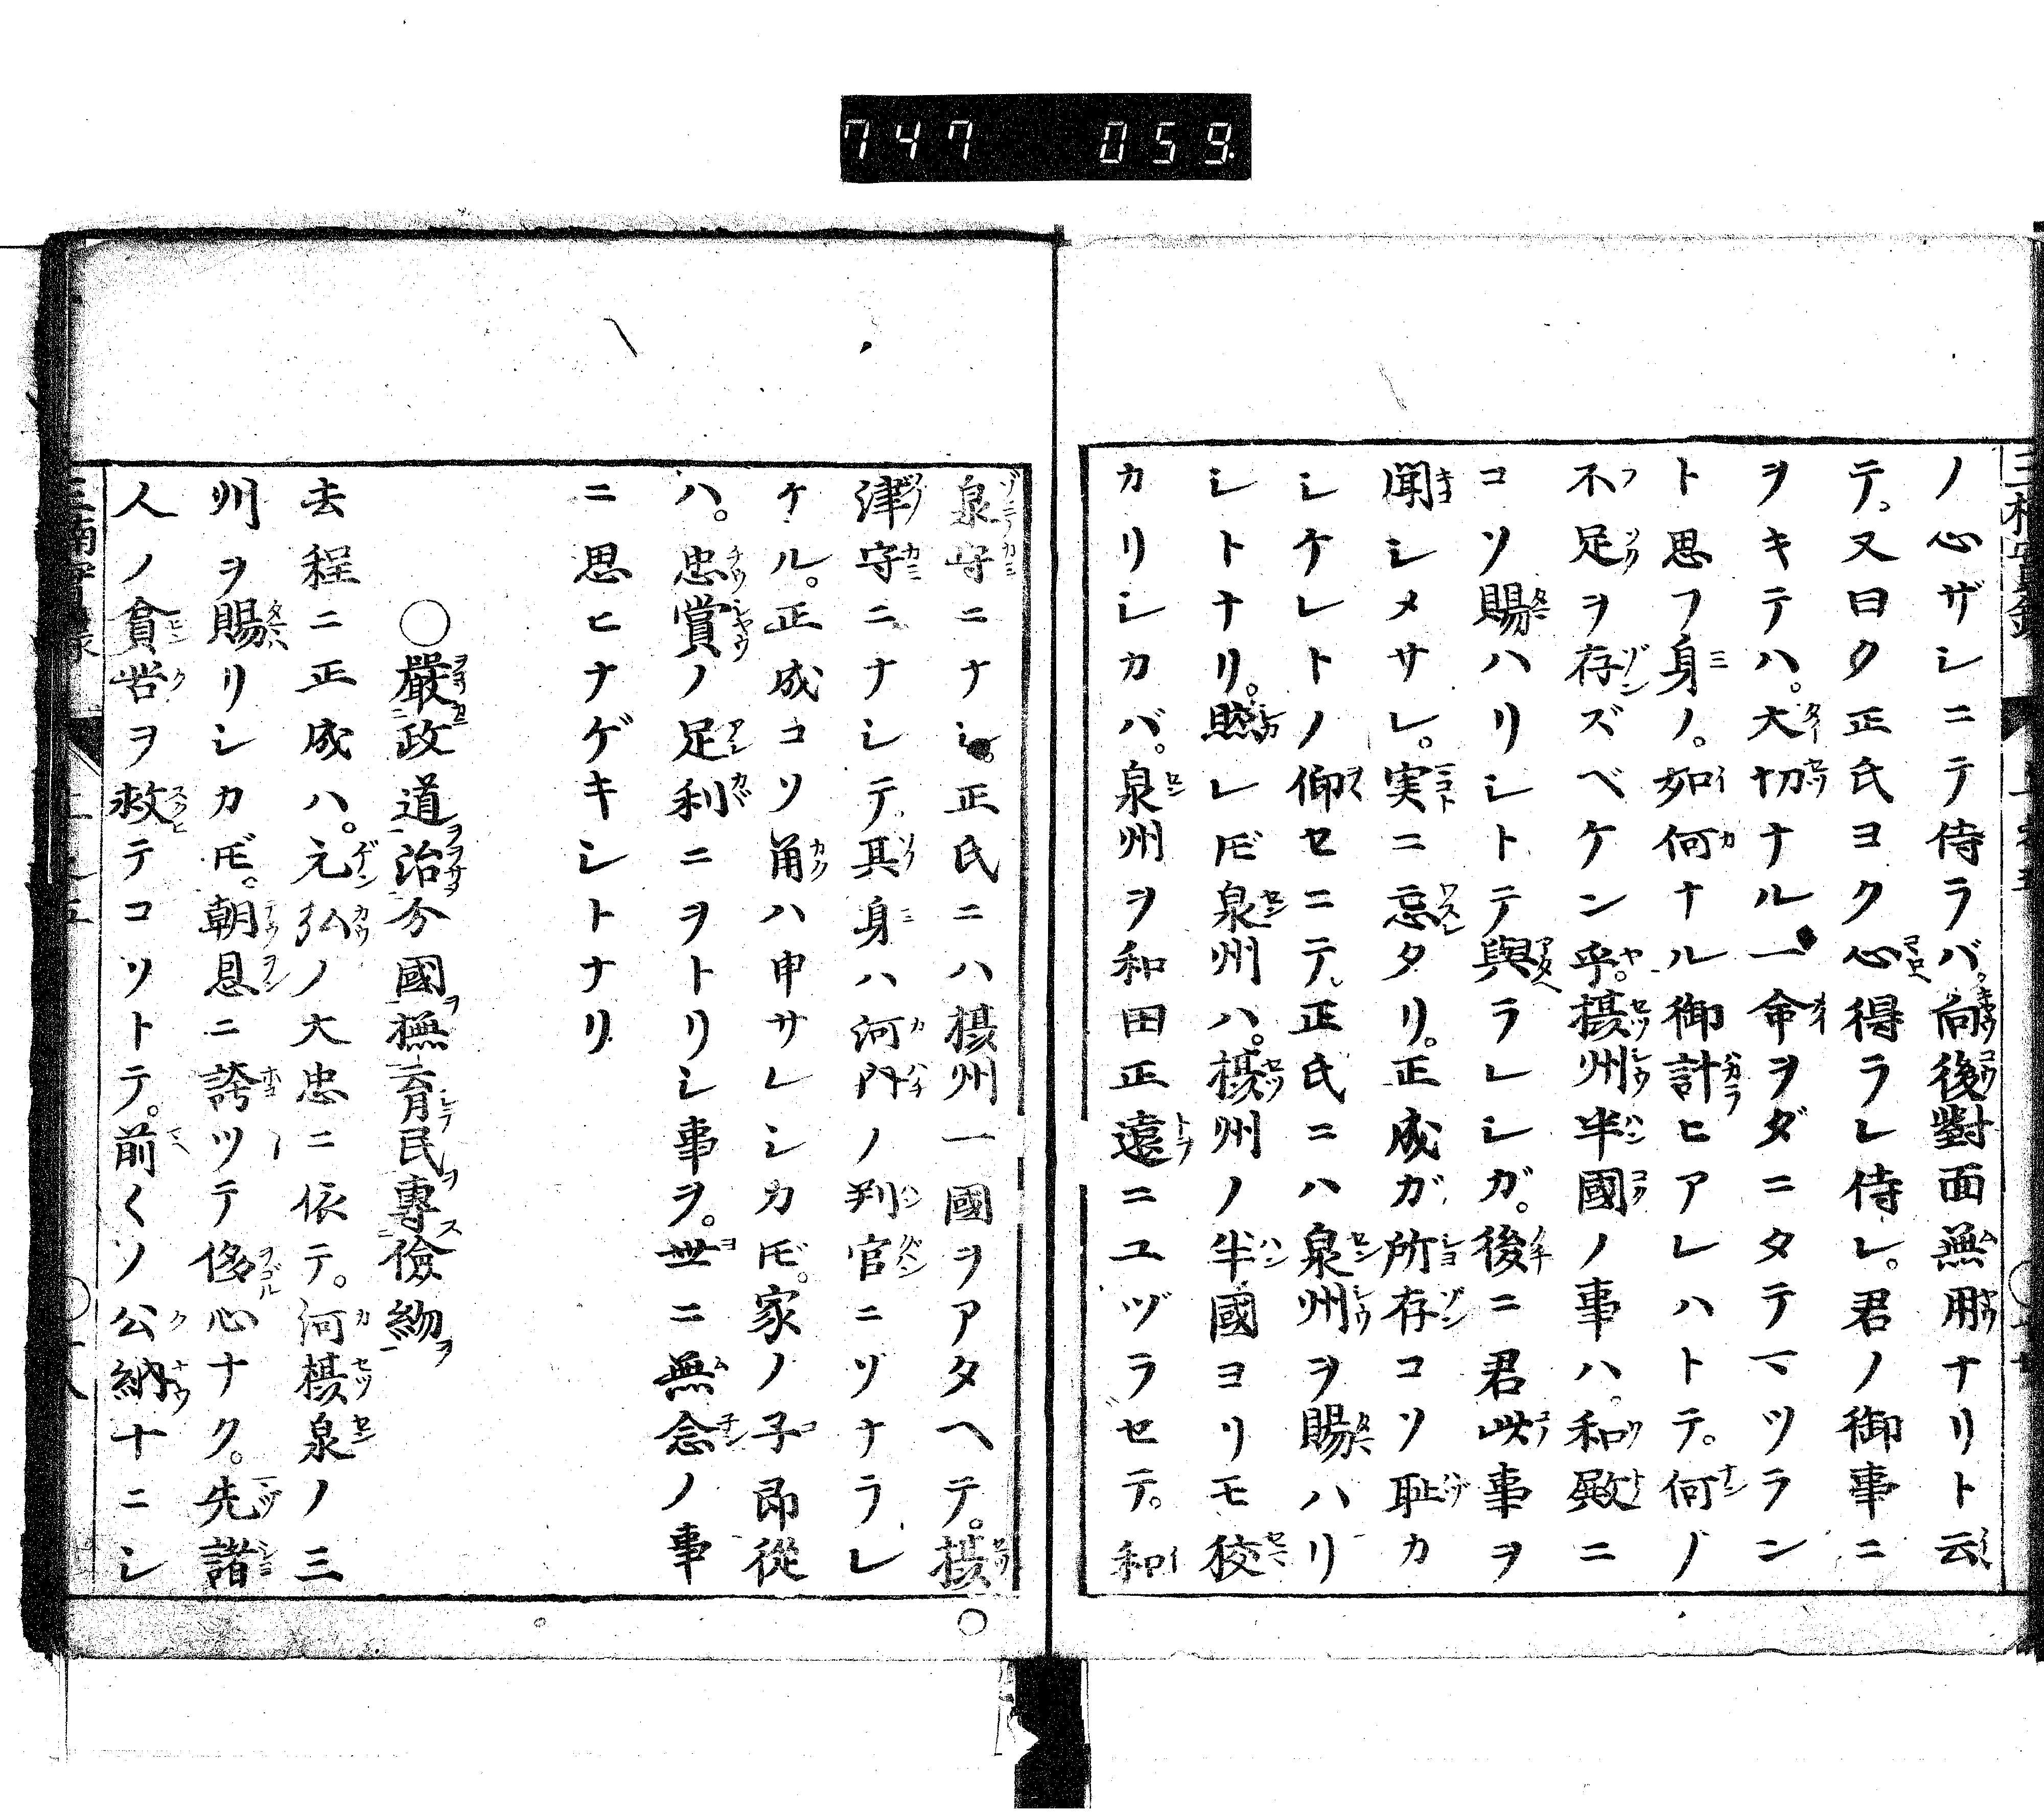 747 059.
ノ心ザシニテ侍ラバ。向後對面無用ナリト云
テ。又曰ク正氏ヨク心得ラレ侍レ。君ノ御事ニ
ヲキテハ。大切ナル一命ヲダニタテマツラン
ト思フ身ノ。如何ナル御計ヒアレハトテ。何ノ
不足ヲ存ズベケン乎。摂州半國ノ事ハ。和殿ニ
コソ賜ハリシトテ與ラレシガ。後ニ君此事ヲ
聞シメサレ。実ニ忘タリ。正成ガ所存コソ耻カ
シケレトノ仰セニテ。正氏ニハ泉州ヲ賜ハリ
シトナリ。然レ𪜈泉州ハ。摂州ノ半國ヨリモ狹
カリシカバ。泉州ヲ和田正遠ニユヅラセテ。和
泉守ニナシ。正氏ニハ摂州一國ヲアタヘテ。摂
津守ニナシテ。其身ハ河内ノ判官ニゾナラレ
ケル。正成コソ角ハ申サレシカ𪜈。家ノ子郎從
ハ。忠賞ノ足利ニヲトリシ事ヲ。世ニ無念ノ事
ニ思ヒナゲキシトナリ
○嚴政道治分國撫育民專儉約
去程ニ正成ハ。元弘ノ大忠ニ依テ。河摂泉ノ三
州ヲ賜リシカ𪜈。朝恩ニ誇ツテ侈心ナク。先諸
人ノ貧苦ヲ救テコソトテ。前〱ソ公納十ニシ